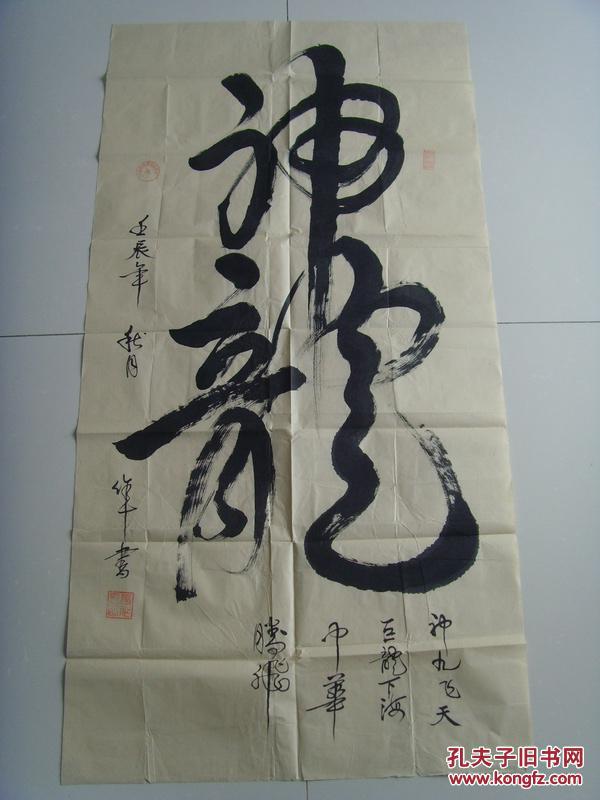 神龍
神九飞天
巨龍下海
中華
腾飛
壬辰年 秋月
华書
孔夫子旧书网
www.kongfz.com